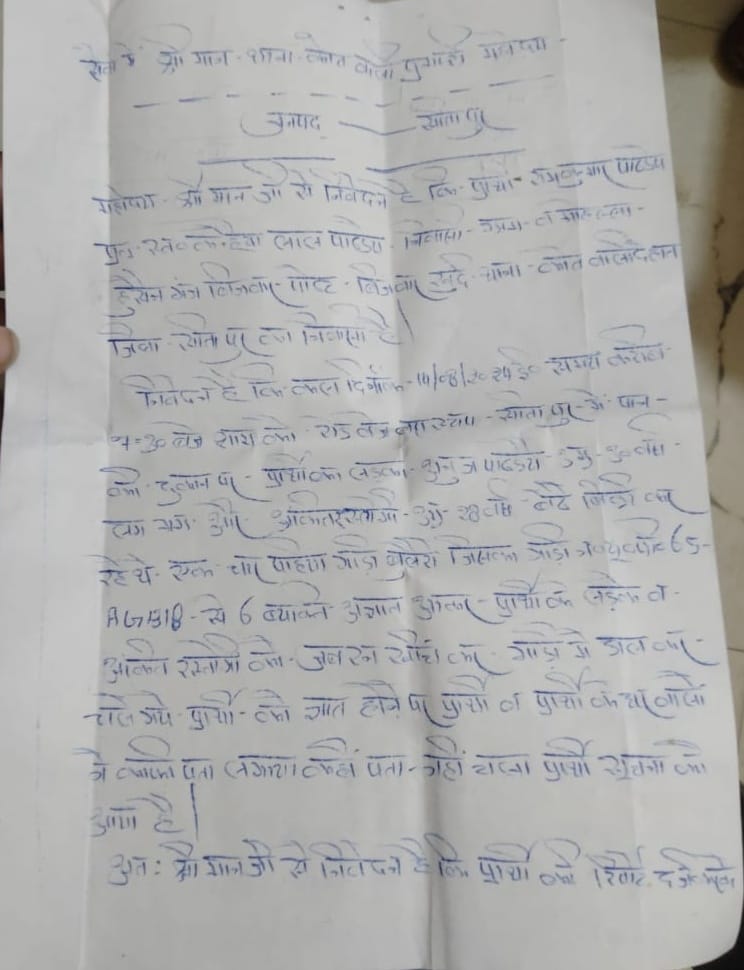 सेवा में श्री मान थाना कोतवाली प्रभारी महोदय -
जनपद —— सीतापुर
महोदय श्री मान जी से निवेदन है कि प्रार्थी राजकुमार पाण्डेय
पुत्र स्व० कन्हैया लाल पाण्डेय निवासी व मोहल्ला -
हुसेन गंज बिजवार पोस्ट - बिजवार थाना - कोतवाली देहात
जिला - सीतापुर का निवासी है।
निवेदन है कि कल दिनांक - 14/08/2024 ई० समय करीब -
बजे शाम को बस स्टाप - सीतापुर में पान -
की दुकान पर - प्रार्थी का लड़का पाण्डेय उम्र - 30 वर्ष -
लग भग और अंकित रस्तोगी उम्र 28 वर्ष बैठे बिक्री कर
रहे थे एक चार पहिया गाड़ी बुलेरो जिसका गाड़ी न० यू०पी० 65 -
AG - से 6 व्यक्ति अज्ञात आकर - प्रार्थी के लड़के व -
अंकित रस्तोगी को - जबरन खींच कर - गाड़ी में डाल कर -
चले गये प्रार्थी - को ज्ञात होने पर प्रार्थी व प्रार्थी के घर वालों
ने काफी पता लगाया कहीं पता - नहीं चला प्रार्थी सूचना को
आया है।
अतः श्री मान जी से निवेदन है कि प्रार्थी की रिपोर्ट दर्ज करके